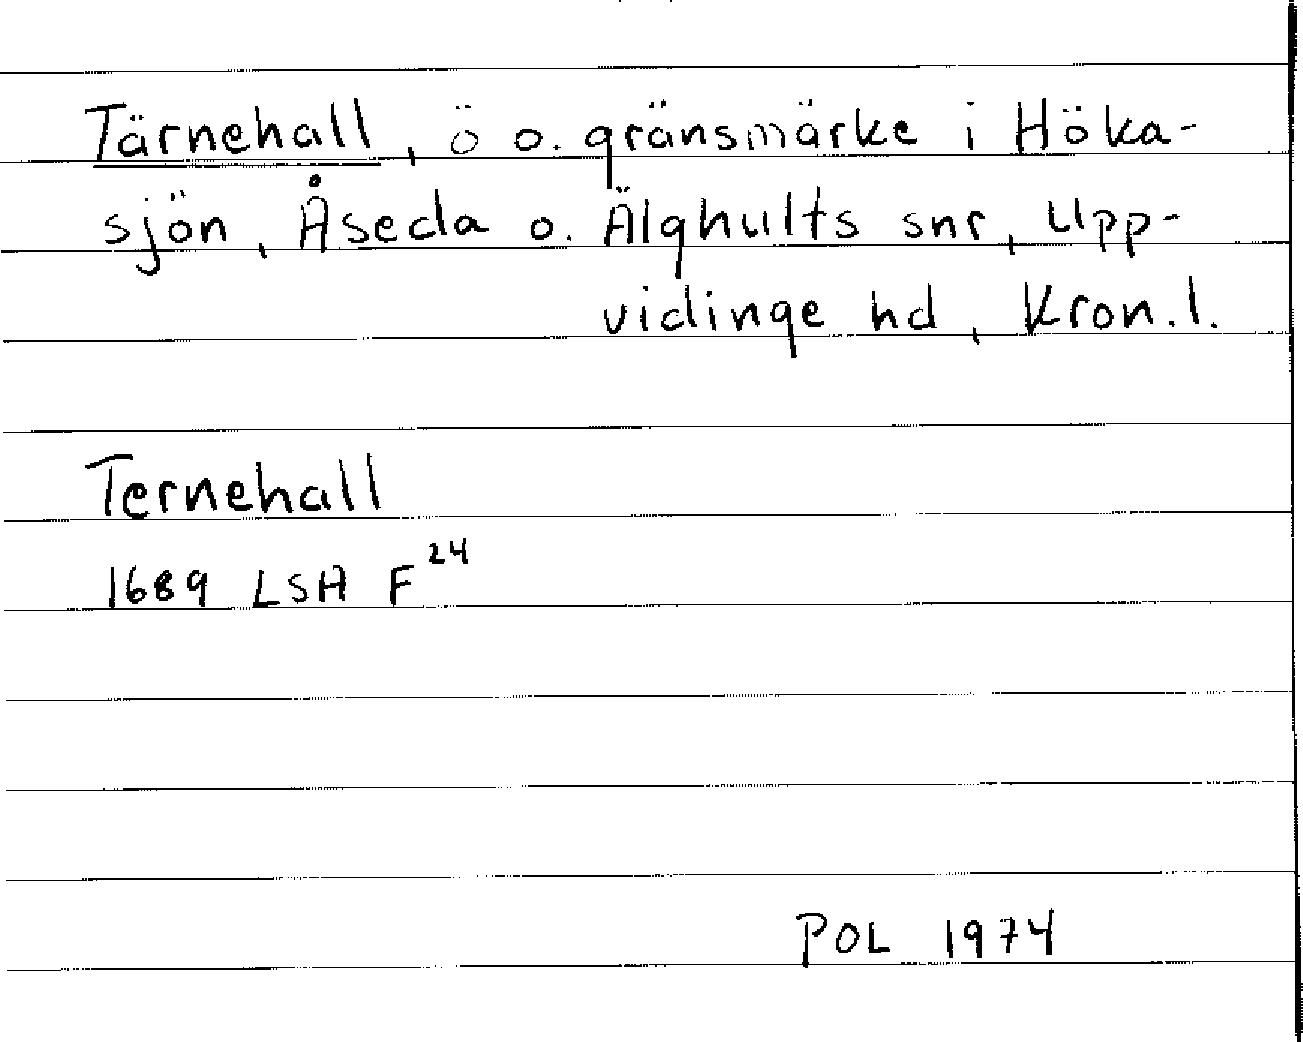 Tärnehall, ö o. gränsmärke i Höka-
sjön, Åseda o. Älghults snr, Upp-
vidinge hd, Kron.l.
Ternehall
1689 LSA F 24
POL 1974